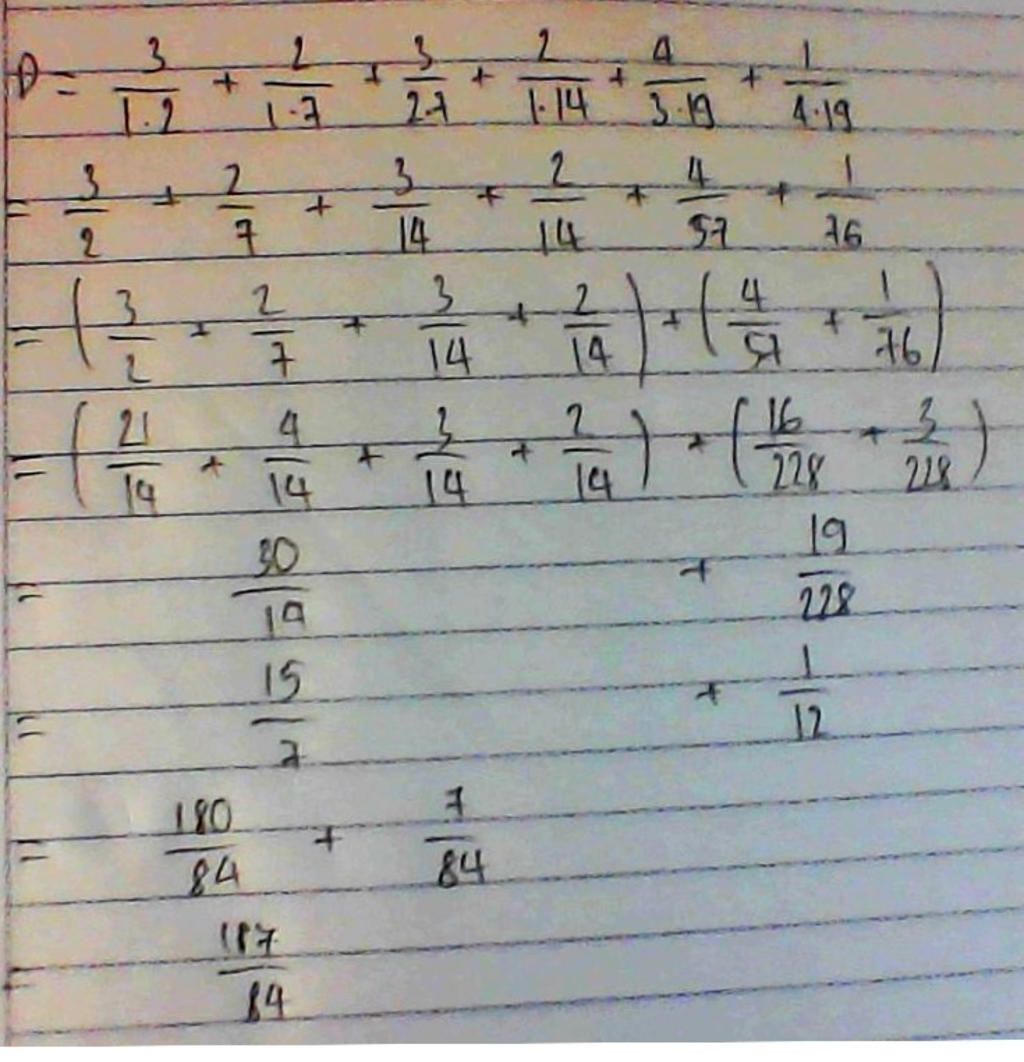 D = 3/(1·2) + 2/(1·7) + 3/(2·7) + 2/(1·14) + 4/(3·19) + 1/(4·19)
= 3/2 + 2/7 + 3/14 + 2/14 + 4/57 + 1/76
= (3/2 + 2/7 + 3/14 + 2/14) + (4/57 + 1/76)
= (21/14 + 4/14 + 3/14 + 2/14) + (16/228 + 3/228)
= 30/14 + 19/228
= 15/7 + 1/12
= 180/84 + 7/84
= 187/84